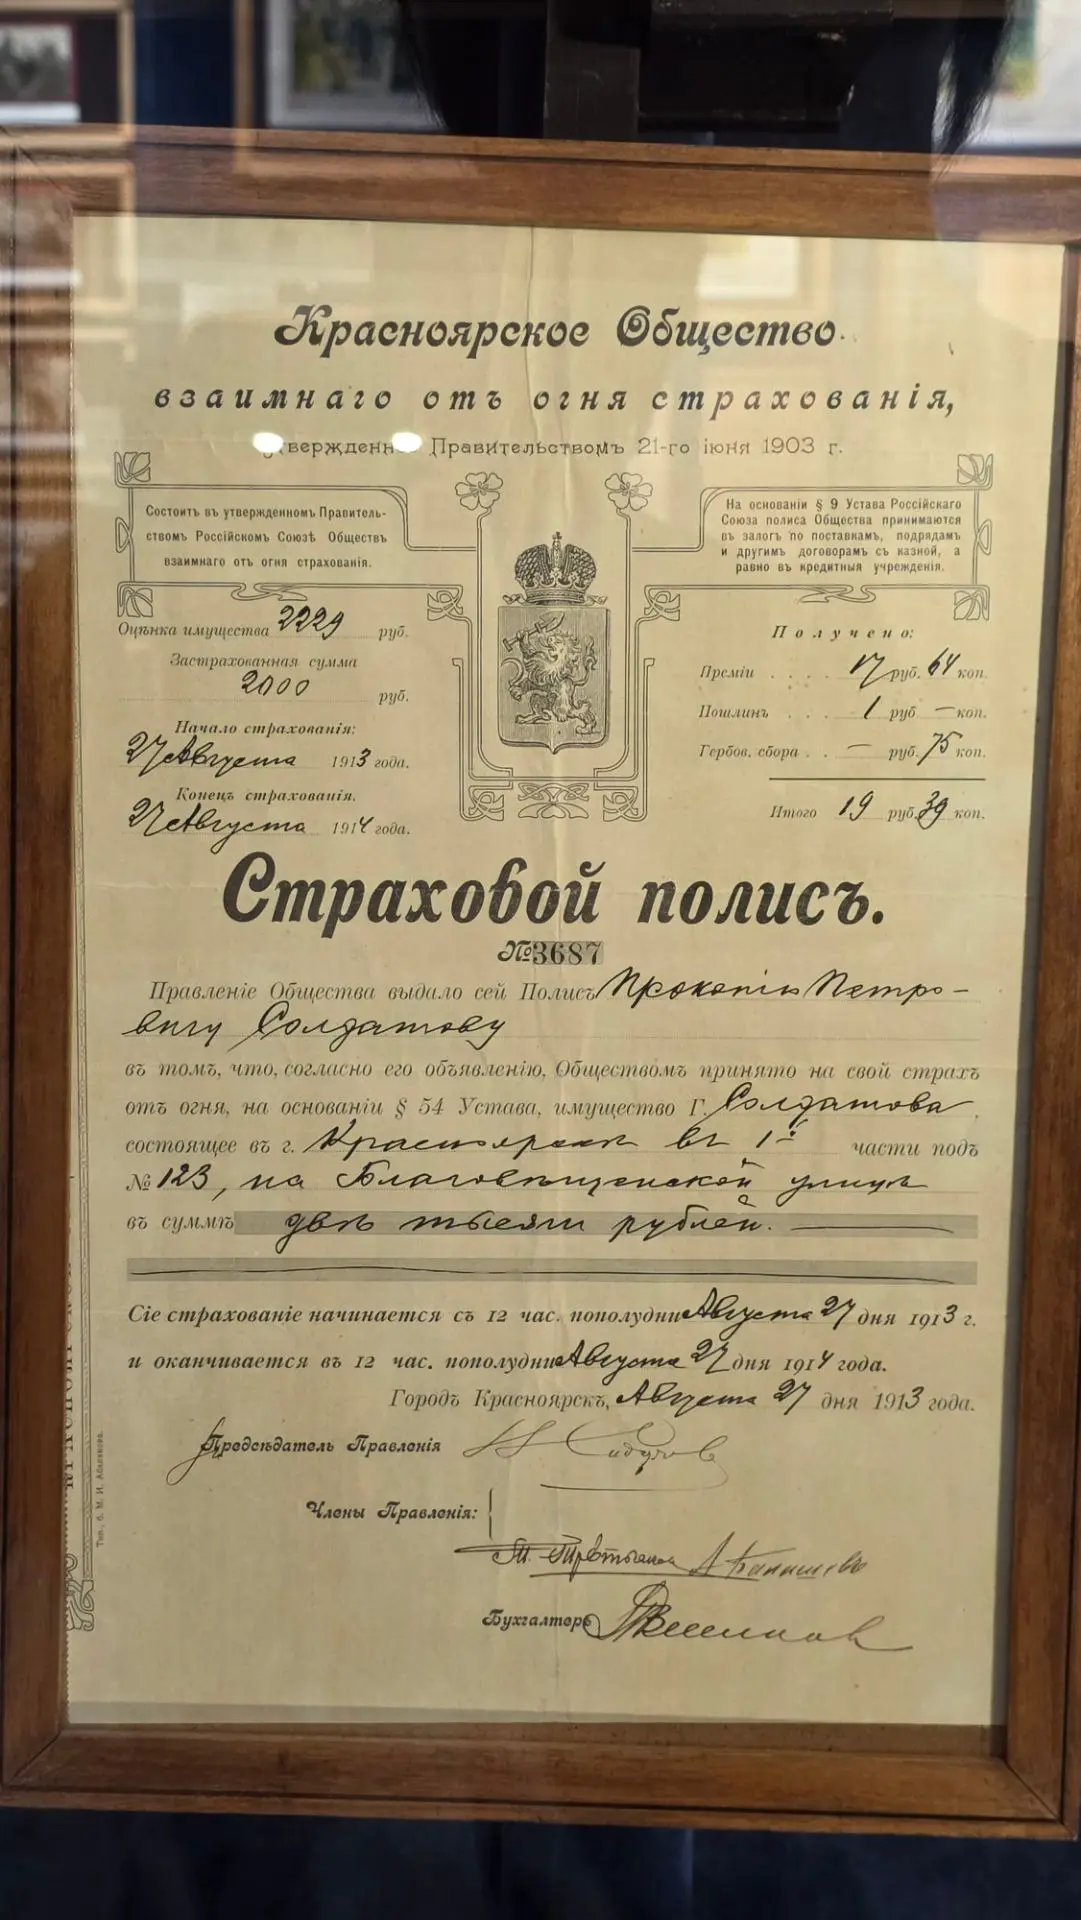 Красноярское Общество
взаимнаго отъ огня страхованія,
Правительствомъ 21-го іюня 1903 г.
Состоитъ въ утвержденномъ Правитель-
ствомъ Россійскомъ Союзѣ Обществъ
взаимнаго отъ огня страхованія.
На основаніи § 9 Устава Россійскаго
Союза полиса Общества принимаются
въ залогъ по поставкамъ, подрядамъ
и другимъ договорамъ съ казной, а
равно въ кредитныя учрежденія.
Оцѣнка имущества 2229 руб.
Застрахованная сумма
2000 руб.
Начало страхованія:
27 Августа 1913 года.
Конецъ страхованія.
27 Августа 1914 года.
Получено:
Преміи . . . . 17 руб. 64 коп.
Пошлинъ . . . 1 руб — коп.
Гербов. сбора . . — руб. 75 коп.
Итого 19 руб. 39 коп.
Страховой полисъ.
№ 3687
Правленіе Общества выдало сей Полисъ Прокопію Петро-
вичу Солдатову
въ томъ, что, согласно его объявленію, Обществомъ принято на свой страхъ
отъ огня, на основаніи § 54 Устава, имущество Г. Солдатова
состоящее въ г. Красноярск въ 1й части подъ
№ 123, на Благовѣщенской улицѣ
въ суммѣ двѣ тысячи рублей.
Сіе страхованіе начинается съ 12 час. пополудни Августа 27 дня 1913 г.
и оканчивается въ 12 час. пополудни Августа 27 дня 1914 года.
Городъ Красноярскъ, Августа 27 дня 1913 года.
Предсѣдатель Правленія
Члены Правленія:
Бухгалтеръ
Тип. б. М. И. Абалакова.